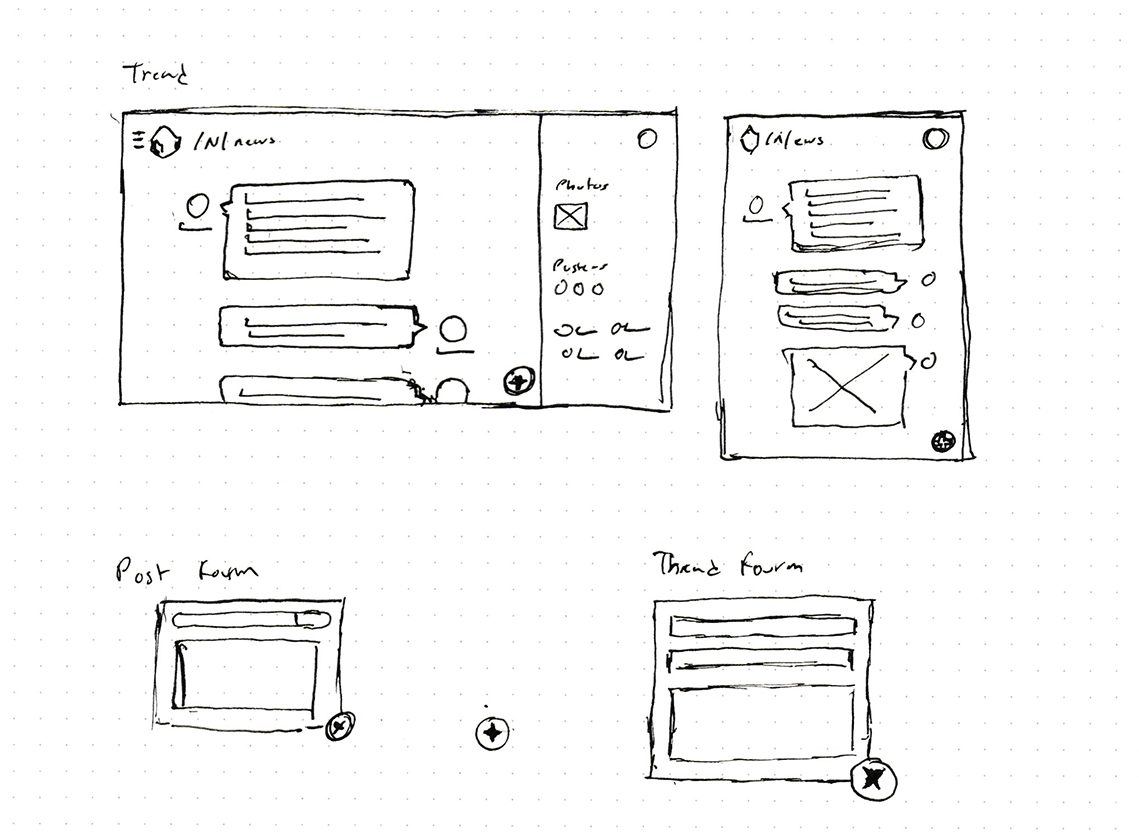 Tread
/N/news
Photos
Posters
/N/ews
Post Fourm
Thread Fourm